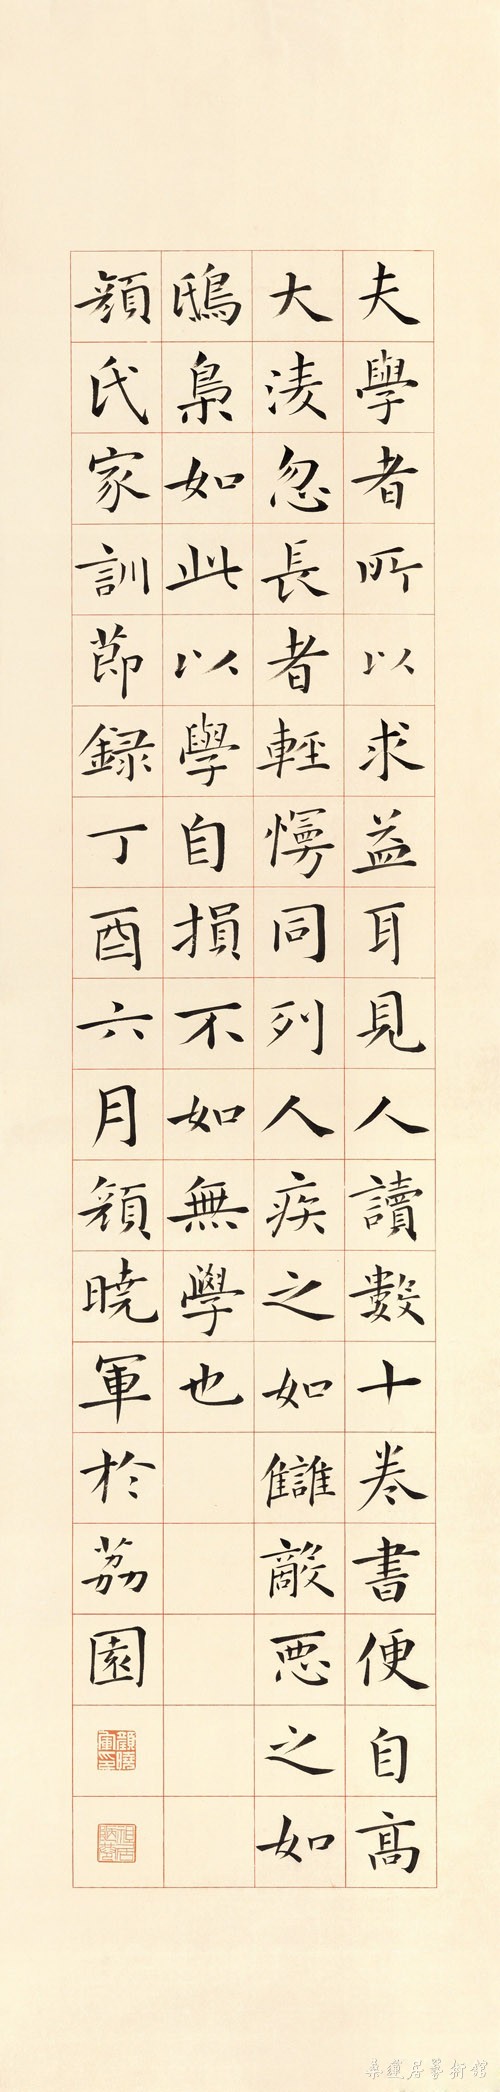 夫學者所以求益耳見人讀數十卷書便自髙
大淩忽長者輕慢同列人疾之如讎敵悪之如
鴟梟如此以學自損不如無學也
顔氏家訓節録丁酉六月顔曉軍於荔園
顔曉軍印
居藝術館